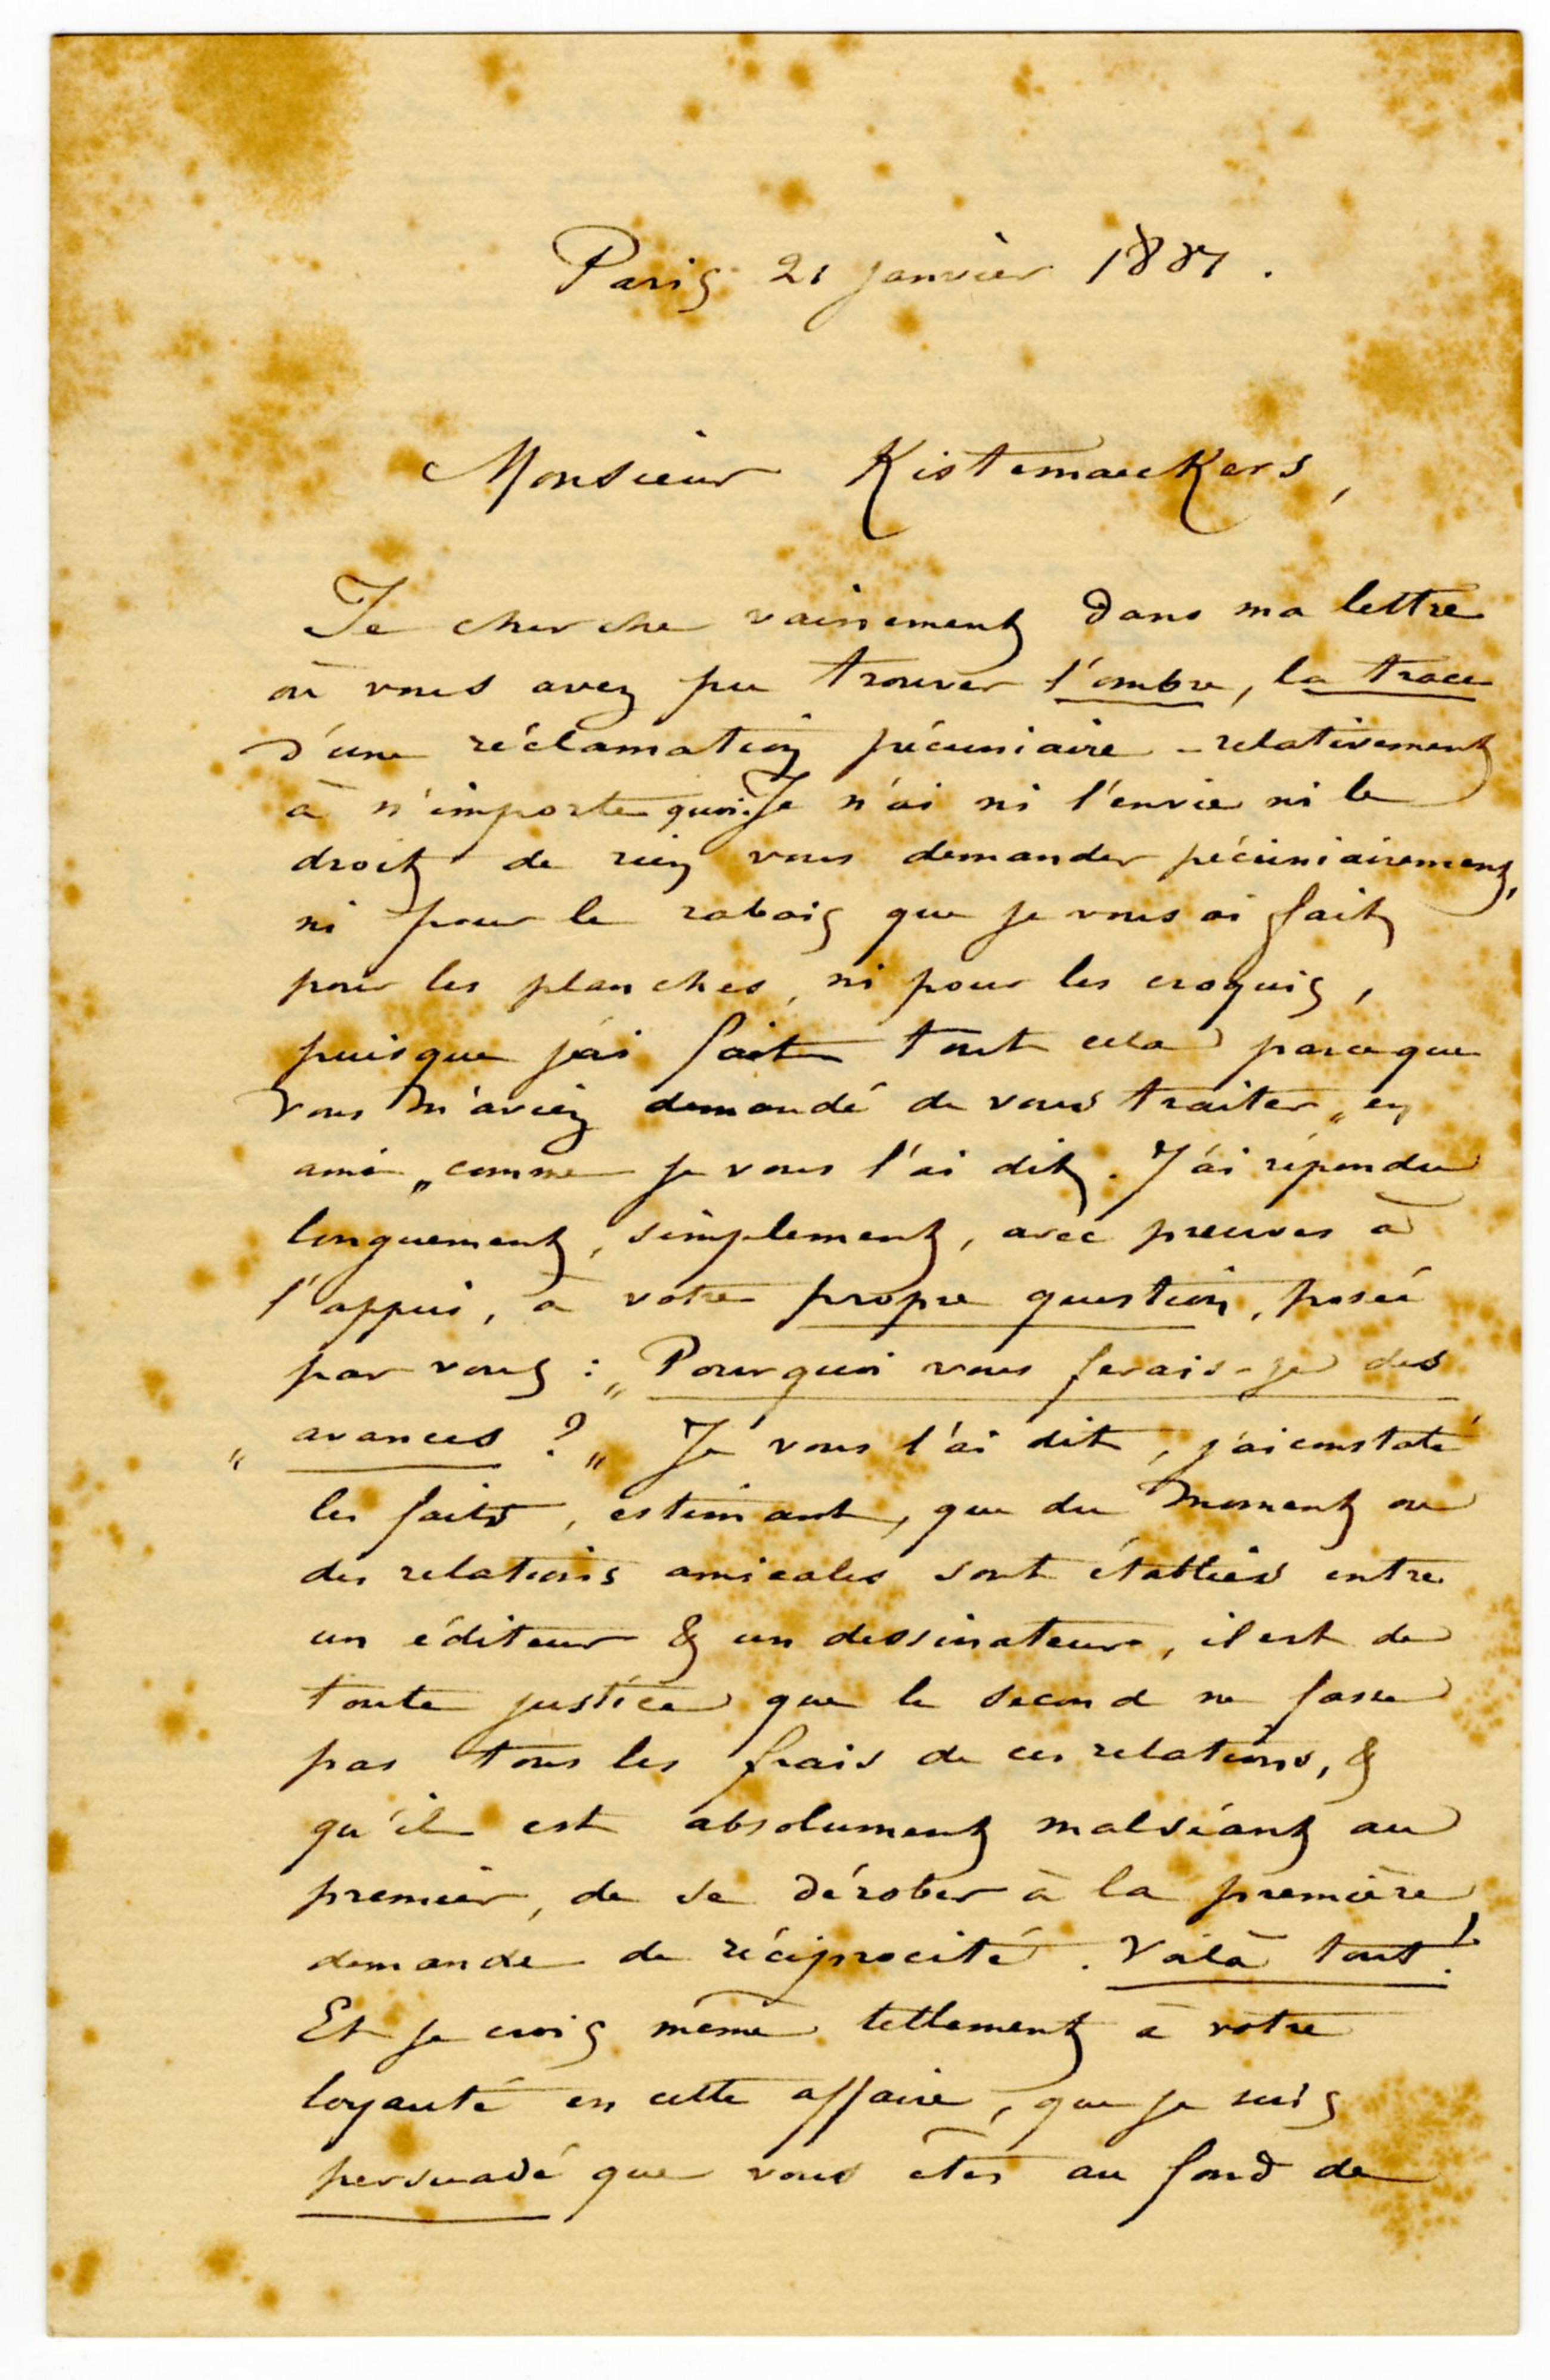 Paris 21 janvier 1887.
Monsieur Kistemaeckers,
Je cherche vainement dans ma lettre
où vous avez pu trouver l'ombre, la trace
d'une réclamation pécuniaire - relativement
à n'importe quoi. Je n'ai ni l'envie ni le
droit de rien vous demander pécuniairement,
ni pour le rabais que je vous ai fait
pour les planches, ni pour les croquis,
puisque j'ai fait tout cela parceque
vous m'aviez demandé de vous traiter „en
ami„ comme je vous l'ai dit. J'ai répondu
longuement, simplement, avec preuves à
l'appui, à votre propre question, posée
par vous : „Pourquoi vous ferais-je des
„ avances ?„ Je vous l'ai dit, j'ai constaté
les faits, estimant, que du moment ou
des relations amicales sont établies entre
un éditeur & un dessinateur, il est de
toute justice que le second ne fasse
pas tous les frais de ces relations, &
qu'il est absolument malséant au
premier, de se dérober à la première
demande de réciprocité. Voilà tout!
Et je crois même tellement à votre
loyauté en cette affaire, que je suis
persuadé que vous êtes au fond de